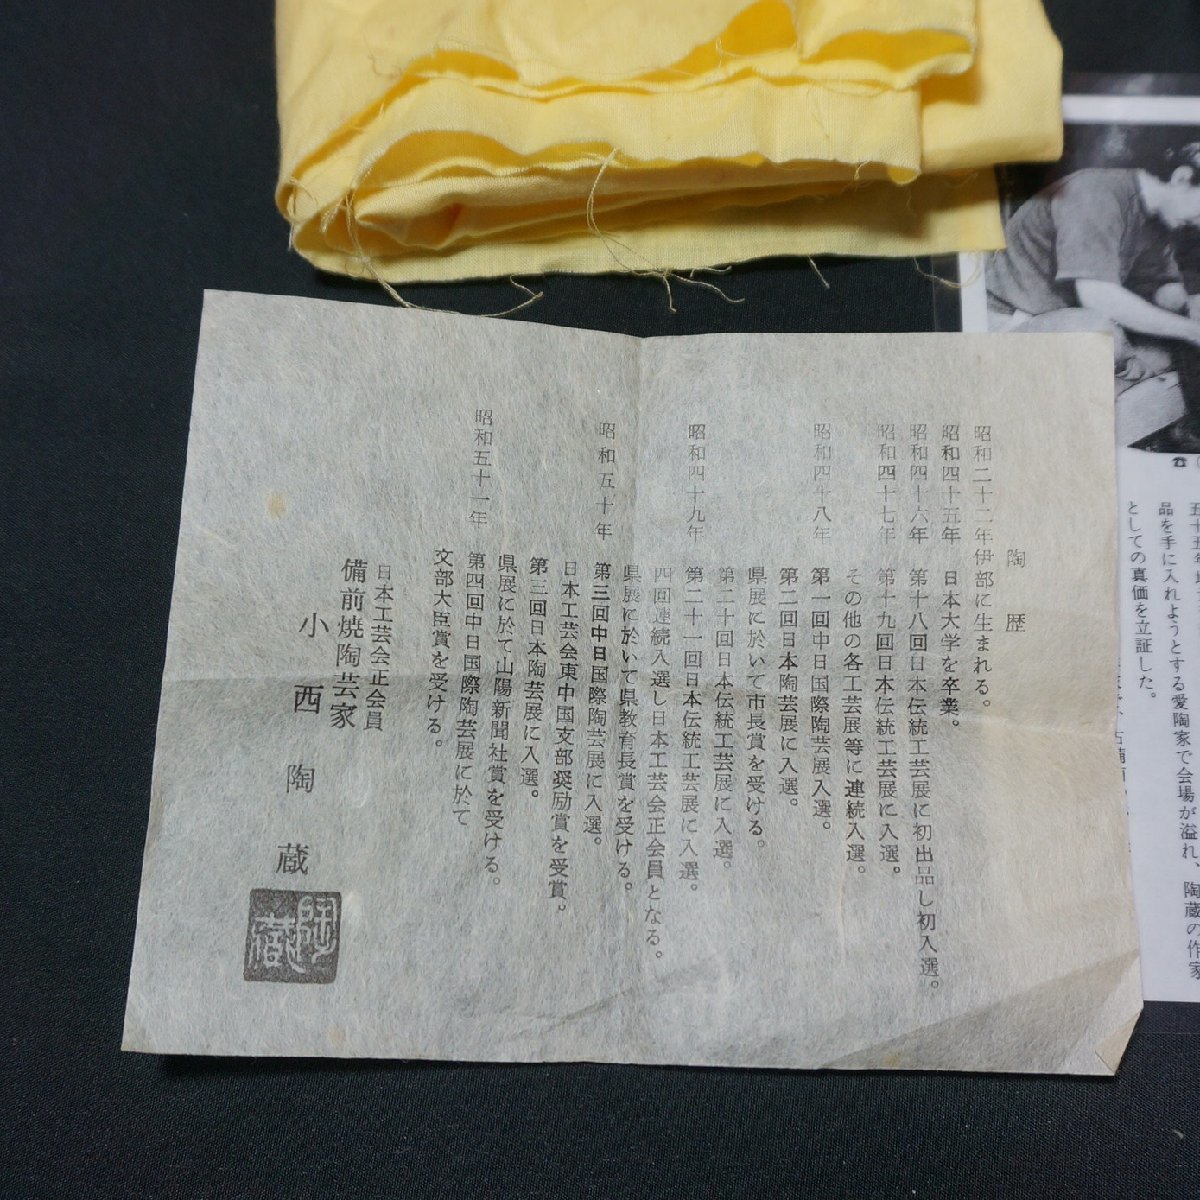 陶歴
昭和二十二年伊部に生まれる。
昭和四十五年 日本大学を卒業。
昭和四十六年 第十八回日本伝統工芸展に初出品し初入選。
昭和四十七年 第十九回日本伝統工芸展に入選。
その他の各工芸展等に連続入選。
昭和四十八年 第一回中日国際陶芸展入選。
第二回日本陶芸展に入選。
県展に於いて市長賞を受ける。
第二十回日本伝統工芸展に入選。
昭和四十九年 第二十一回日本伝統工芸展に入選。
四回連続入選し日本工芸会正会員となる。
県展に於いて県教育長賞を受ける。
昭和五十年 第三回中日国際陶芸展に入選。
日本工芸会東中国支部奨励賞を受賞。
第三回日本陶芸展に入選。
県展に於て山陽新聞社賞を受ける。
昭和五十一年 第四回中日国際陶芸展に於て
文部大臣賞を受ける。
日本工芸会正会員
備前焼陶芸家
小西陶蔵
陶蔵
品を手に入れようとする愛陶家で会場が溢れ、陶蔵の作家
としての真価を立証した。